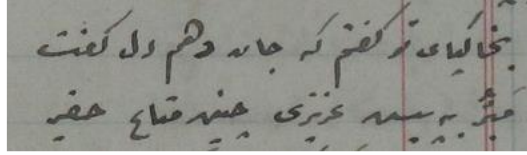 بخاکپای تو گفتم که جان دهم دل گفت
مبر به پیش عزیزی چنین متاع حقیر